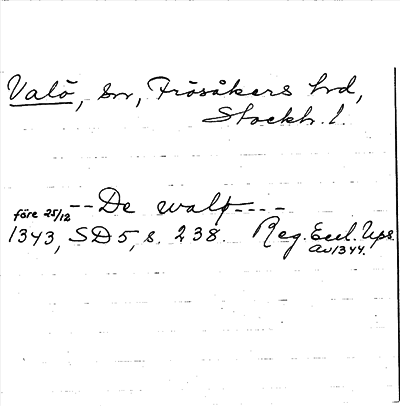 Valö, sn, Frösåkers hd,
Stockh. l.
-- De walø ----
före 25/12
1343, SD 5, s. 238. Reg. Eccl. Ups.
Av 1344.